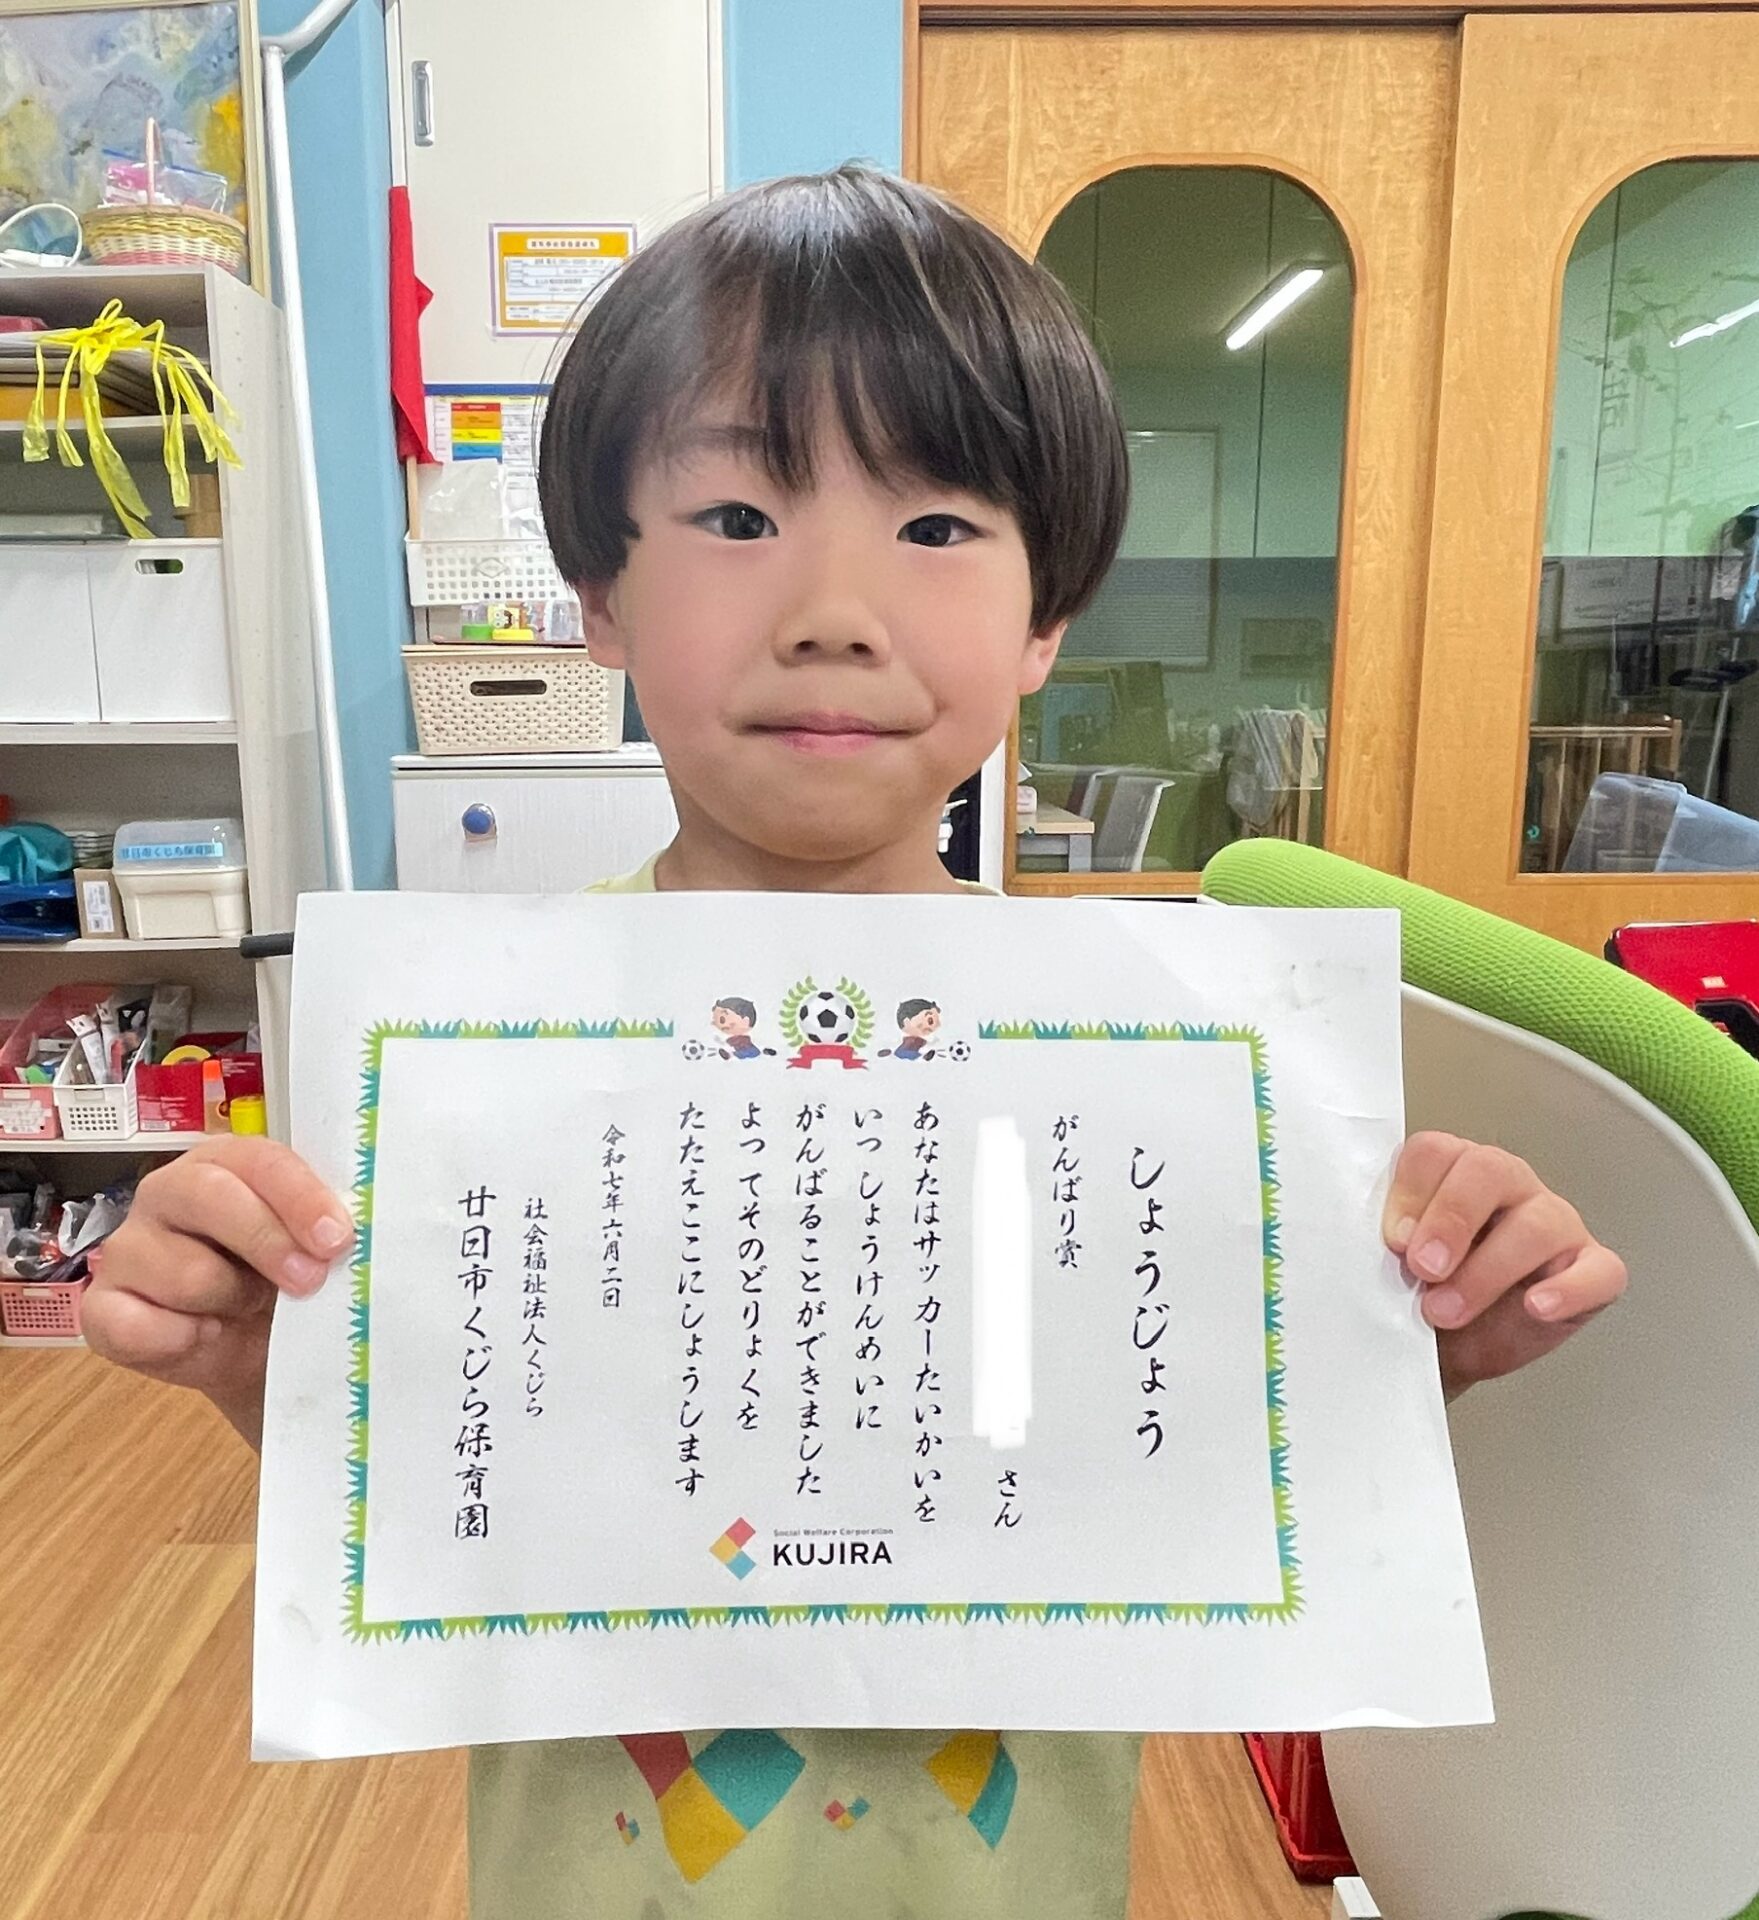 しょうじょう
がんばり賞
さん
あなたはサッカーたいかいを
いっしょうけんめいに
がんばることができました
よってそのどりょくを
たたえここにしょうします
令和七年六月二日
社会福祉法人くじら
廿日市くじら保育園
Social Welfare Corporation
KUJIRA
廿日市くじら保育園